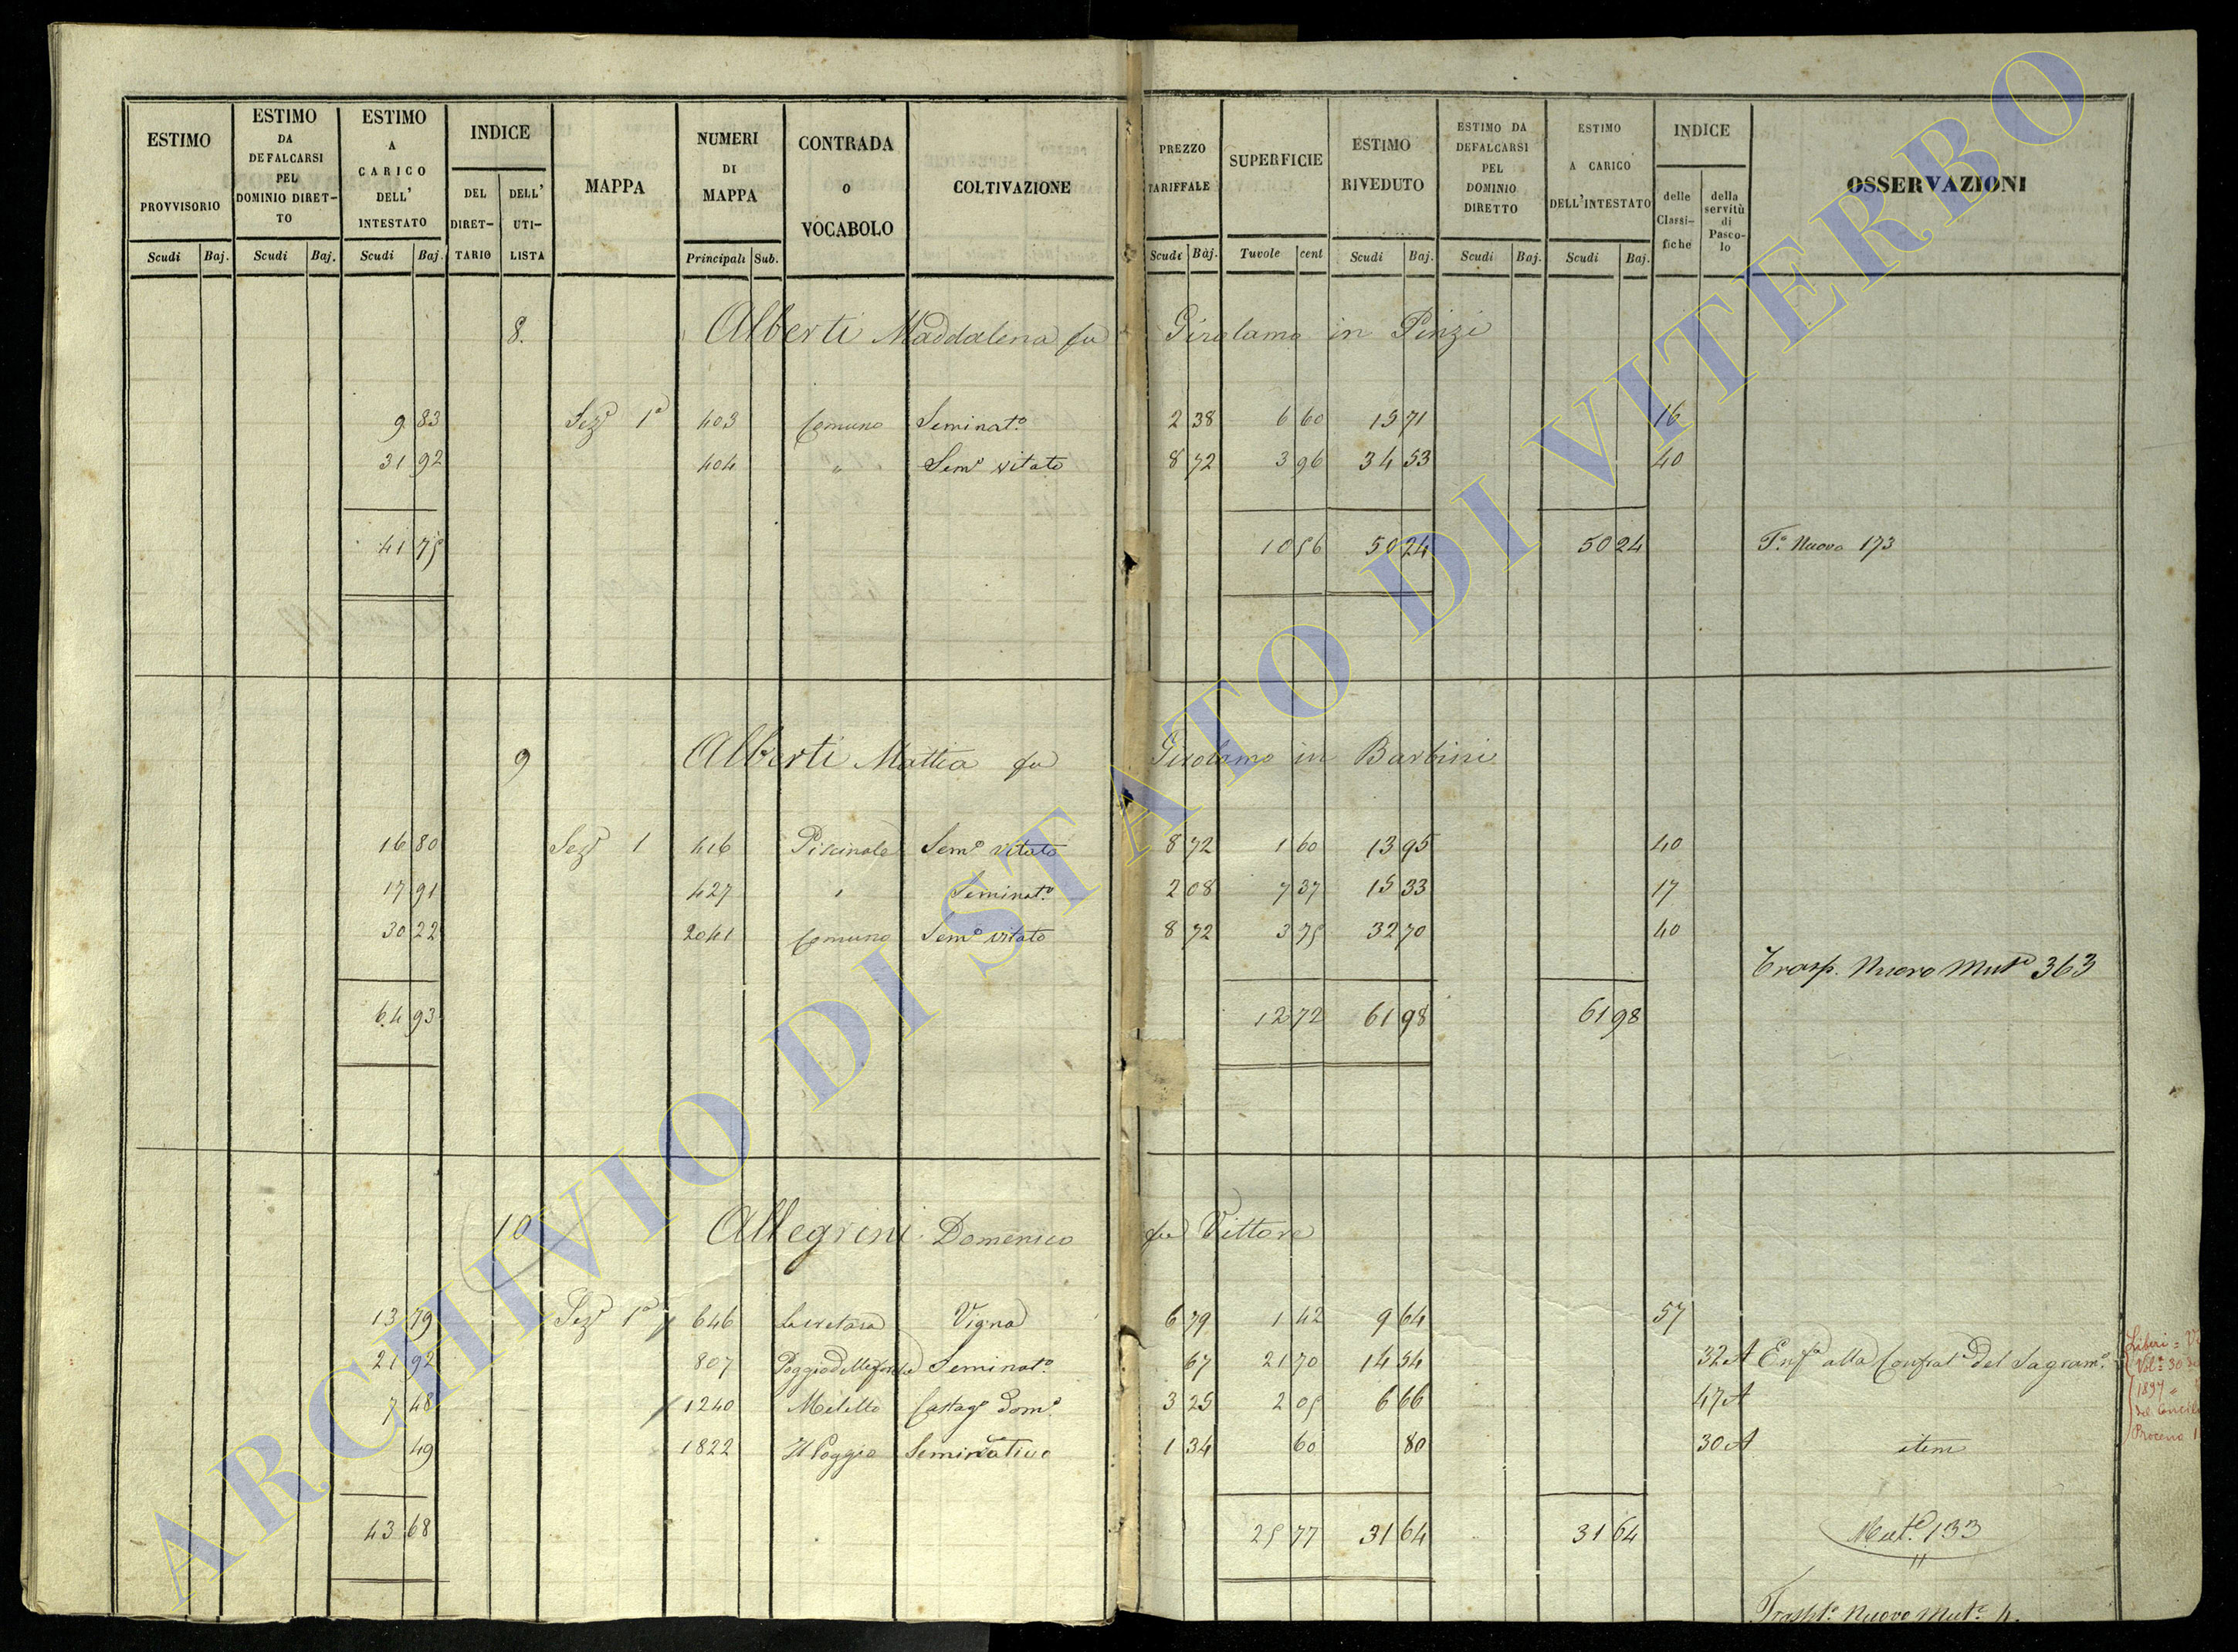 ESTIMO PROVVISORIO Scudi Baj.
ESTIMO DA DEFALCARSI PEL DOMINIO DIRET-TO Scudi Baj.
ESTIMO A CARICO DELL' INTESTATO Scudi Baj.
INDICE DEL DIRET-TARIO DELL' UTI-LISTA
MAPPA
NUMERI DI MAPPA Principali Sub.
CONTRADA O VOCABOLO
COLTIVAZIONE
PREZZO TARIFFALE Scudi Baj.
SUPERFICIE Tavole cent
ESTIMO RIVEDUTO Scudi Baj.
ESTIMO DA DEFALCARSI PEL DOMINIO DIRETTO Scudi Baj.
ESTIMO A CARICO DELL'INTESTATO Scudi Baj.
INDICE delle Classi-fiche della servitù di Pasco-lo
OSSERVAZIONI
8. Alberti Maddalena fu Girolamo in Pinzi
9 83 Sezᵉ 1ª 403 Comuno Seminatº 2 38 6 60 15 71 16
31 92 404 " Semº vitato 8 72 3 96 34 53 40
41 75 10 56 50 24 50 24 T.º Nuovo 173
9 Alberti Mattia fu Girolamo in Barbini
16 80 Sezᵉ 1 416 Piscinale Semº vitato 8 72 1 60 13 95 40
17 91 427 " Seminatº 2 08 7 37 15 33 17
30 22 2041 Comuno Semº vitato 8 72 3 75 32 70 40
Trasp. Nuovo Mutº 363
64 93 12 72 61 98 61 98
10 Allegrini Domenico fu Vittore
13 79 Sezᵉ 1ª 646 Vigna 6 79 1 42 9 64 57
21 92 807 Poggio delle forche Seminatº 67 21 70 14 54 32 A Enfª alla Confratª del Sagramº
7 48 1240 Meletto Castagº Domº 3 25 2 05 6 66 47 A
49 1822 Il Poggio Seminativo 1 34 60 80 30 A item
43 68 25 77 31 64 31 64 Mutº 133
Traspº Nuovo Mutº 4.
Liberi =
Vol. 30
1897
Proceno
ARCHIVIO DI STATO DI VITERBO